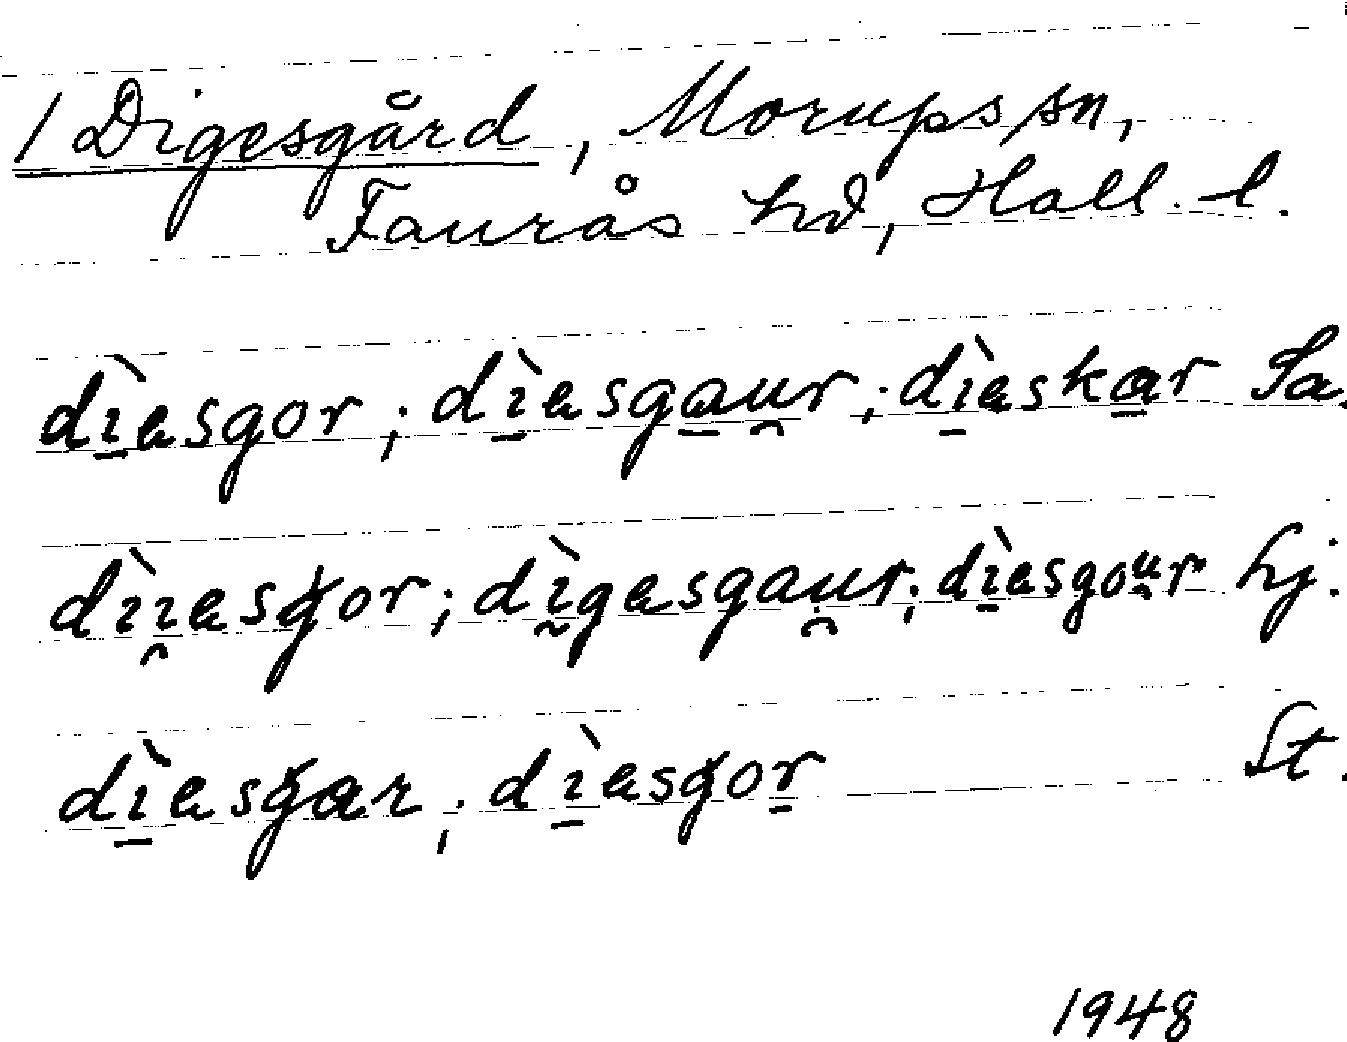 1 Digesgård, Morups sn,
Faurås hd, Hall. l.
dìesgor; dìesgau̯r; dìeskar Sa.
dìi̯esgor; dìgesgau̯r; dìesgou̯r Hj.
dìesgar, dìesgor St.
1948